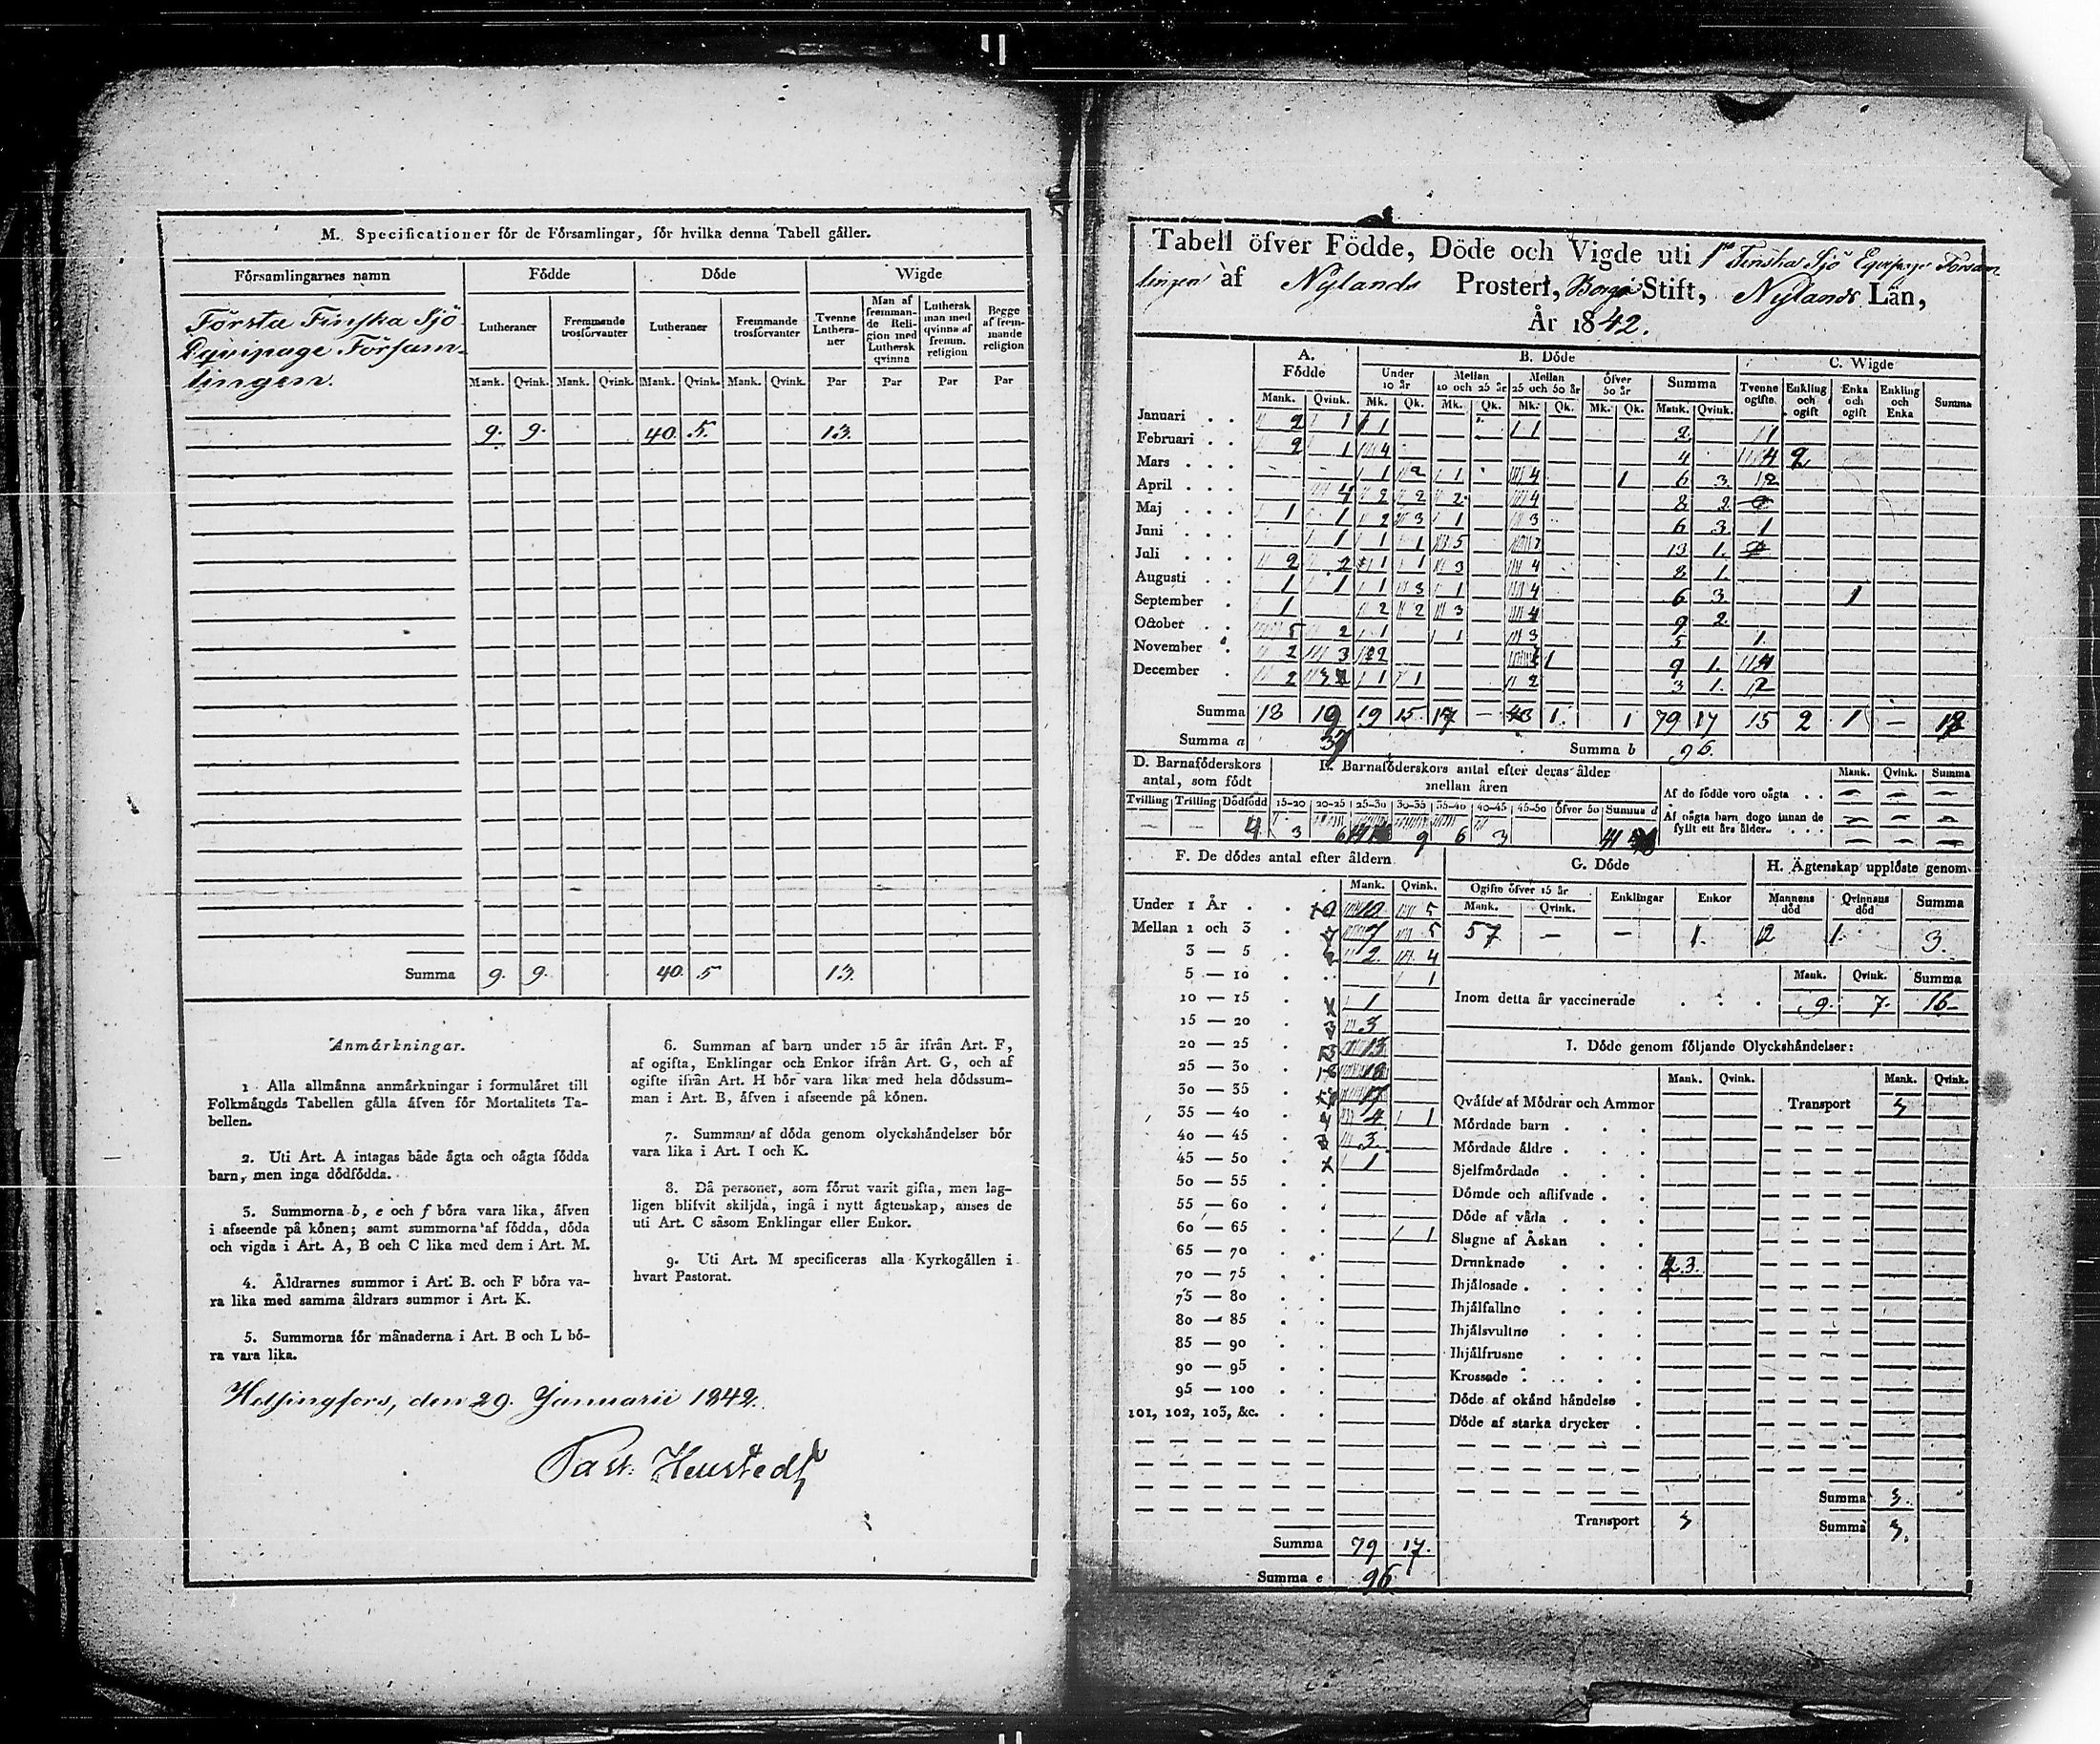 M. Specificationer för de Församlingar, för hvilka denna Tabell gäller.
Församlingarnes namn Födde Döde Wigde
Lutheraner Fremmande trosförvanter Lutheraner Fremmande trosförvanter Tvenne Lutheraner Man af fremmande Religion med Luthersk qvinna Luthersk man med qvinna af fremm. religion Begge af fremmande religion
Mank. Qvink. Mank. Qvink. Mank. Qvink. Mank. Qvink. Par Par Par Par
Första Finska Sjö
Eqvipage Försam-
lingen.
9. 9. 40. 5. 13.
Summa 9. 9. 40. 5. 13.
Anmärkningar.
1 Alla allmänna anmärkningar i formuläret till
Folkmängds Tabellen gälla äfven för Mortalitets Ta-
bellen.
2. Uti Art. A intagas både ägta och oägta födda
barn, men inga dödfödda.
3. Summorna b, e och f böra vara lika, äfven
i afseende på könen; samt summorna af födda, döda
och vigda i Art. A, B och C lika med dem i Art. M.
4. Åldrarnes summor i Art. B. och F böra va-
ra lika med samma åldrars summor i Art. K.
5. Summorna för månaderna i Art. B och L bö-
ra vara lika.
6. Summan af barn under 15 år ifrån Art. F,
af ogifta, Enklingar och Enkor ifrån Art. G, och af
ogifte ifrån Art. H bör vara lika med hela dödssum-
man i Art. B, äfven i afseende på könen.
7. Summan af döda genom olyckshändelser bör
vara lika i Art. I och K.
8. Då personer, som förut varit gifta, men lag-
ligen blifvit skiljda, ingå i nytt ägtenskap, anses de
uti Art. C såsom Enklingar eller Enkor.
9. Uti Art. M specificeras alla Kyrkogällen i
hvart Pastorat.
Helsingfors, den 29. Januarii 1842.
Tabell öfver Födde, Döde och Vigde uti 1sta Finska Sjö Eqvipage Försam
lingen af Nylands Prosteri, Borgå Stift, Nylands Län,
År 1842.
A. Födde B. Döde C. Wigde
Under 10 år Mellan 10 och 25 år Mellan 25 och 50 år Öfver 50 år Summa Tvenne ogifte Enkling och ogift Enka och ogift Enkling och Enka Summa
Mank. Qvink. Mk. Qk. Mk. Qk. Mk. Qk. Mk. Qk. Mank. Qvink.
Januari 2 1 1 1 2 1
Februari 2 1 4 4 4 2
Mars 1 2 1 4 1 6 3 2
April 4 2 2 2 4 8 2
Maj 1 1 2 3 1 3 6 3 1
Juni 1 1 1 5 7 13 1.
Juli 2 2 1 1 3 4 8 1.
Augusti 1 1 1 3 1 4 6 3 1
September 1 2 2 3 4 9 2
October 5 2 1 1 3 5 1.
November 2 3 2 1 9 1. 4
December 2 1 1 2 3 1. 2
Summa 18 19 19 15. 17 — 43 1. 1 79 17 15 2 1 — 18
Summa a 37 Summa b 96.
D. Barnaföderskors antal, som födt
Tvilling Trilling Dödfödd
— — 4
E. Barnaföderskors antal efter deras ålder mellan åren
15-20 20-25 25-30 30-35 35-40 40-45 45-50 Öfver 50 Summa d
3 6 14 9 6 3 41
Mank. Qvink. Summa
Af de födde voro oägta — — —
Af oägta barn dogo innan de fyllt ett års ålder — — —
F. De dödes antal efter åldern
Mank. Qvink.
Under 1 År 10 5
Mellan 1 och 3 7 5
3 — 5 2 4
5 — 10 1
10 — 15 1
15 — 20 3
20 — 25 13
25 — 30 18
30 — 35 17
35 — 40 4 1
40 — 45 3
45 — 50 1
50 — 55
55 — 60
60 — 65 1
65 — 70
70 — 75
75 — 80
80 — 85
85 — 90
90 — 95
95 — 100
101, 102, 103, &c.
Summa 79 17.
Summa e 96
G. Döde
Ogifte öfver 15 år Enklingar Enkor
Mank. Qvink.
57 — — 1.
H. Ägtenskap upplöste genom
Mannens död Qvinnans död Summa
2 1. 3.
Mank. Qvink. Summa
Inom detta år vaccinerade 9. 7. 16
I. Döde genom följande Olyckshändelser:
Mank. Qvink. Mank. Qvink.
Qväfde af Mödrar och Ammor Transport 3
Mördade barn
Mördade äldre
Sjelfmördade
Dömde och aflifvade
Döde af våda
Slagne af Åskan
Drunknade 3.
Ihjälosade
Ihjälfallne
Ihjälsvultne
Ihjälfrusne
Krossade
Döde af okänd händelse
Döde af starka drycker
Summa 3.
Transport 3 Summa 3.